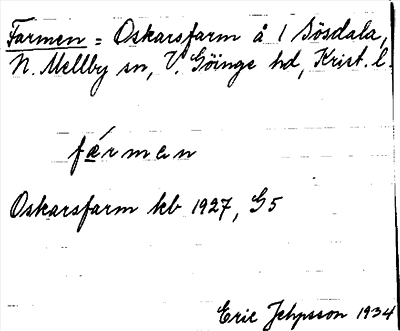 Farmen = Oskarsfarm å 1 Sösdala,
N. Mellby sn, V. Göinge hd, Krist. l.
färmen
Oskarsfarm kb 1927, G5
Eric Jehpsson 1934